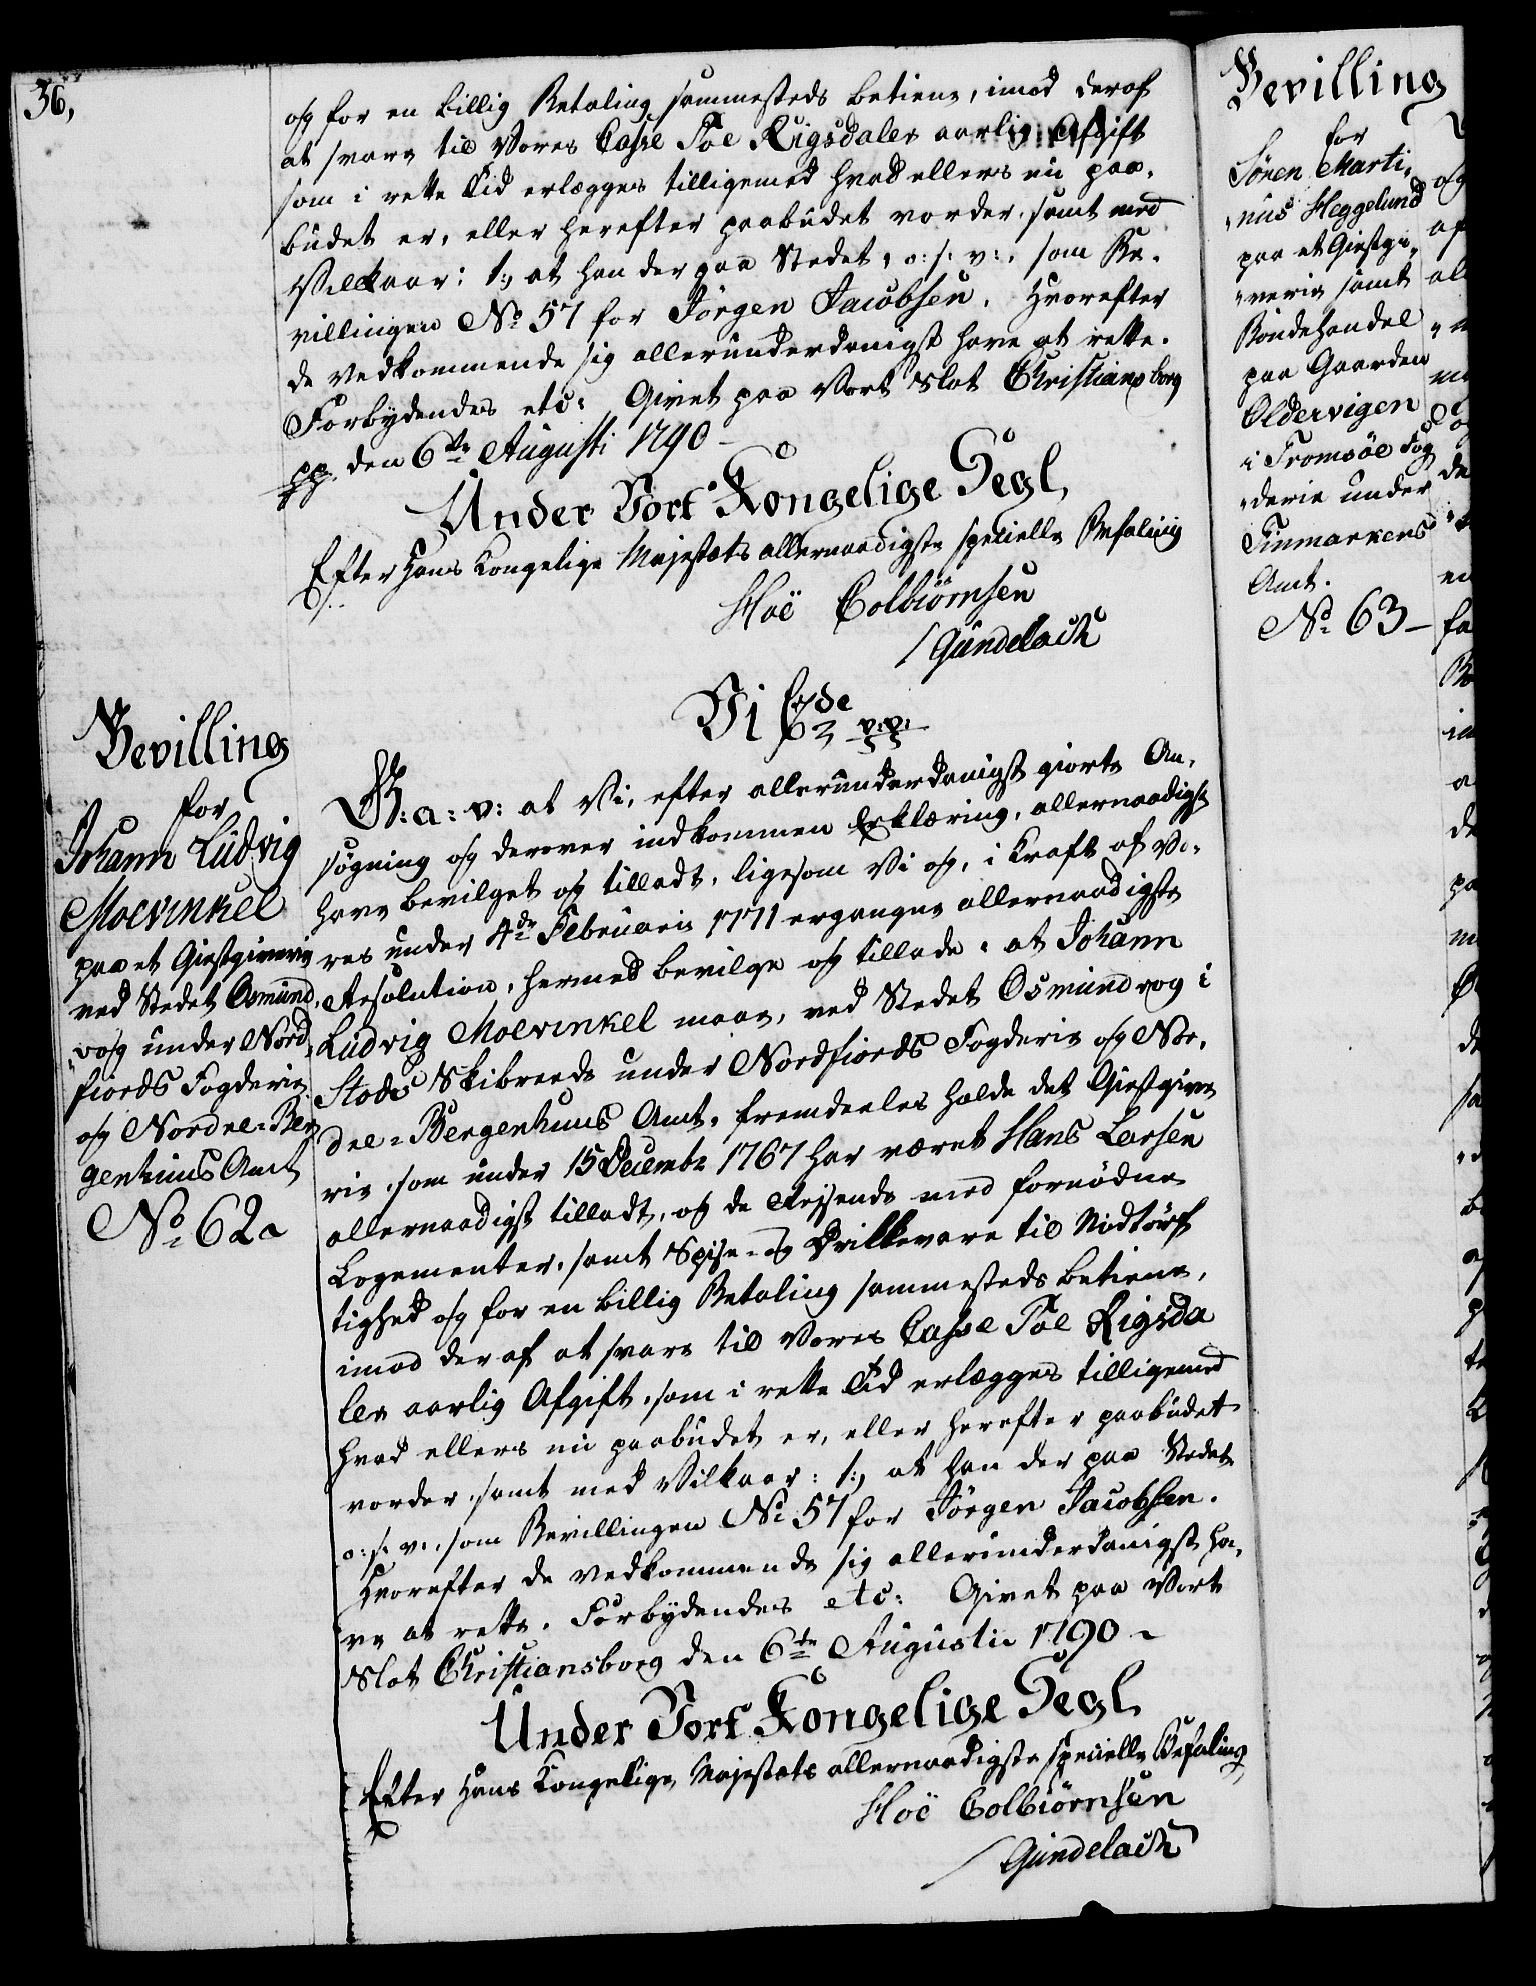 36,
og for en billig Betaling sammesteds betiene, imod deraf
at svare til Vores Casse Toe Rigsdaler aarlig Afgift
som i rette Tid erlægges tilligemed hvad ellers nu paa-
budet er, eller herefter paabudet vorder, samt med
Vilkaar: 1:, at han der paa Stedet, o: s: v:, som Be-
villingen No 57 for Jörgen Jacobsen. Hvorefter
de Vedkommende sig allerunderdanigst have at rette.
Forbydendes etc: Givet paa Vort Slot Christiansborg
pp. den 6te Augusti 1790 —
Under Vort Kongelige Segl,
Efter Hans Kongelige Majestæts allernaadigste specielle Befaling
Hoë Colbiörnsen
/ Gundelach
Bevilling
for
Johann Ludvig
Moevinkel
paa et Giestgiverie
ved Stedet Osmund-
vog under Nord-
fiords Fogderie
og Nordre-Ber
genhuus Amt
No 62
Vi C7de pp:
G: a: v: at Vi, efter allerunderdanigst giorte An-
søgning og derover indkommen Erklæring, allernaadigst
have bevilget og tilladt, ligesom Vi og, i Kraft af Vo-
res under 4de Februarii 1771 ergangne allernaadigste
Resolution, hermed bevilge og tillade, at Johann
Ludvig Moevinkel maae, ved Stedet Osmundvog i
Stads Skibreede under Nordfiords Fogderie og Nor-
dre-Bergenhuus Amt, fremdeeles holde det Giestgive
rie, som under 15 Decembr 1767 har været Hans Larsen
allernaadigst tilladt, og de Rejsende med fornødne
Logementer, samt Spise- og Drikkevare til Nødtörf
tighed og for en billig Betaling sammesteds betiene,
imod deraf at svare til Vores Casse Toe Rigsda
ler aarlig Afgift, som i rette Tid erlægges tilligemed
hvad ellers nu paabudet er, eller herefter paabudet
vorder, samt med Vilkaar: 1:, at han der paa Stedet
o: s: v:, som Bevillingen No 57 for Jörgen Jacobsen.
Hvorefter de vedkommende sig allerunderdanigst ha-
ve at rette. Forbydendes etc: Givet paa Vort
Slot Christiansborg den 6te Augustii 1790 ~
Under Vort Kongelige Segl,
Efter Hans Kongelige Majestæts allernaadigste specielle Befaling,
Hoë Colbiörnsen
/ Gundelach
Bevilling
for
Sören Marti-
nus Heggelund
paa et Giestgi-
verie samt
Bondehandel
paa Gaarden
Oldervigen
i Tromsöe Fog
derie under
Finmarkens
Amt.
No 63 —